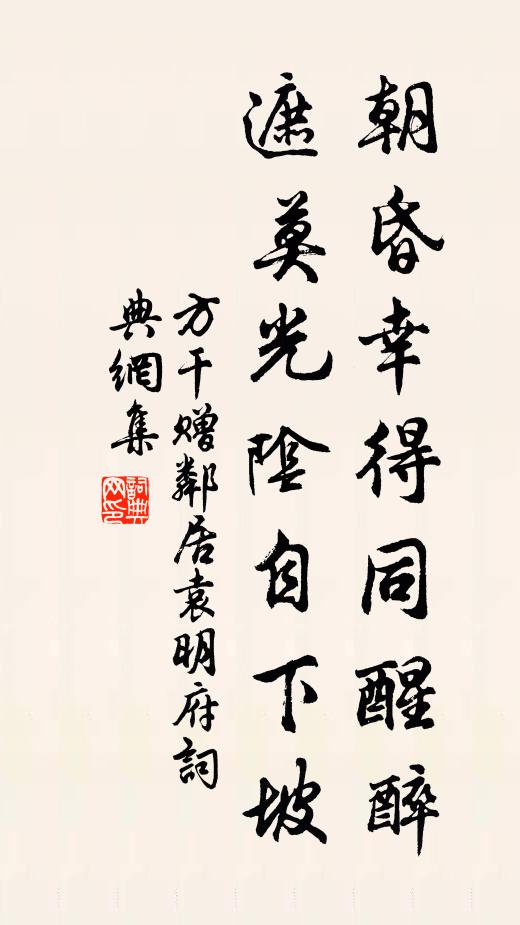 朝昏幸得同醒醉
遮莫光陰自下坡
方干赠鄰居袁明府詞
典網集
詞典
网印